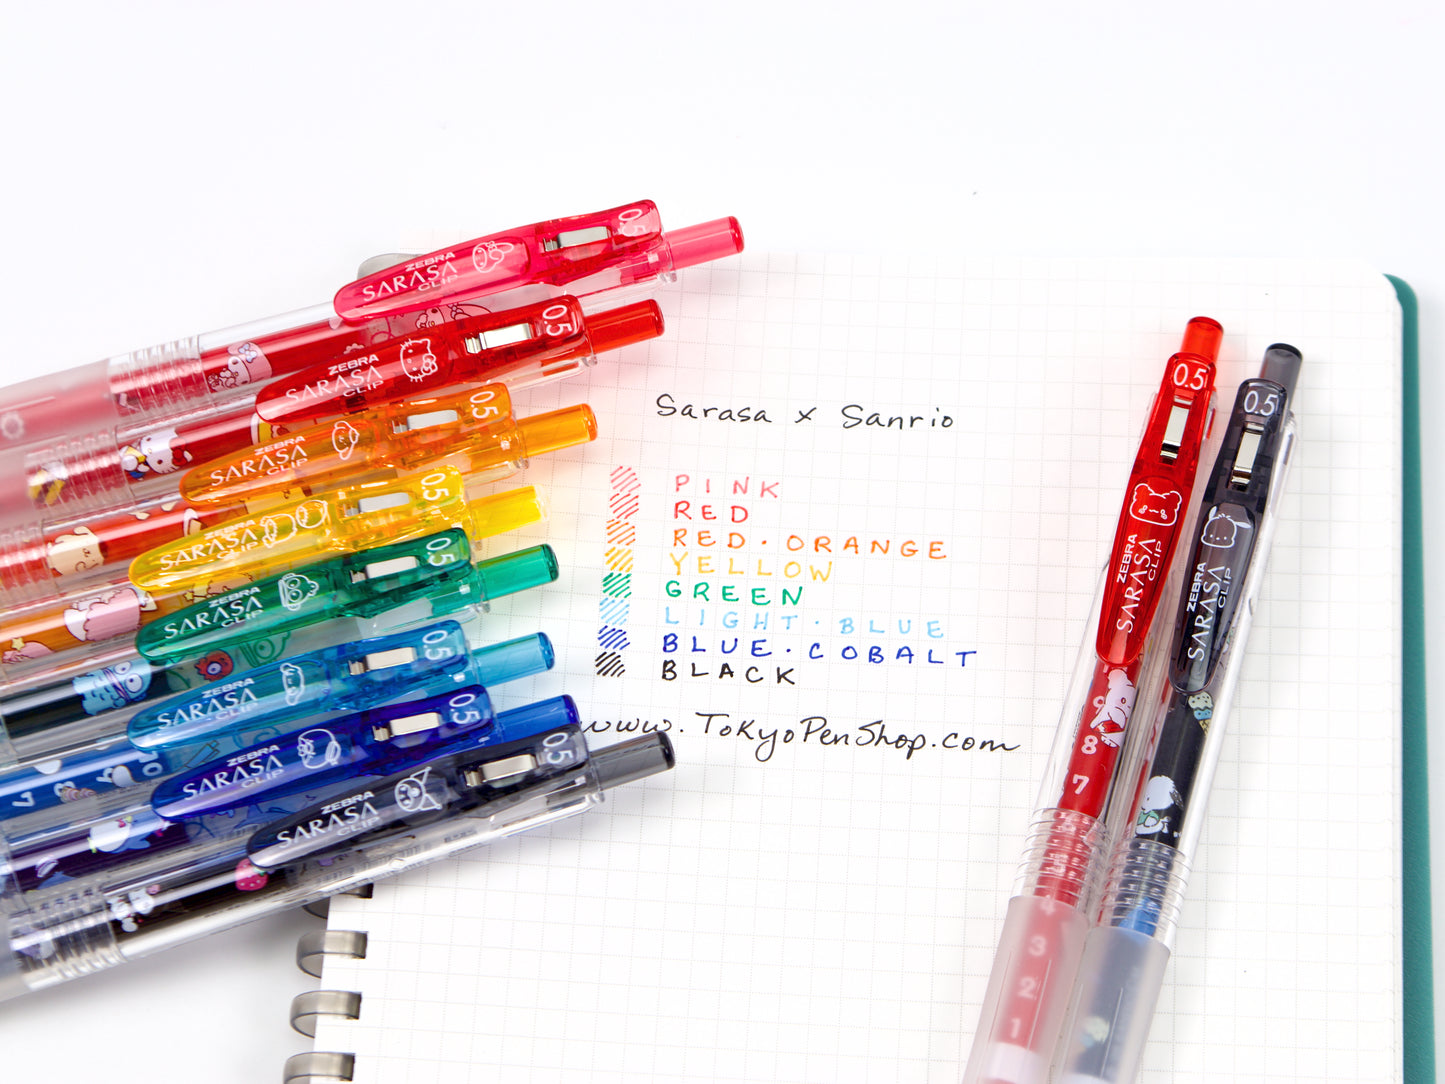 0.5
ZEBRA
SARASA
CLIP
0.5
ZEBRA
SARASA
CLIP
0.5
ZEBRA
SARASA
CLIP
0.5
ZEBRA
SARASA
CLIP
0.5
ZEBRA
SARASA
CLIP
0.5
ZEBRA
SARASA
CLIP
10
7
0.5
ZEBRA
SARASA
CLIP
0.5
ZEBRA
SARASA
CLIP
Sarasa x Sanrio
PINK
RED
RED·ORANGE
YELLOW
GREEN
LIGHT·BLUE
BLUE·COBALT
BLACK
www.TokyoPenShop.com
0.5
ZEBRA
SARASA
CLIP
9
8
7
5
4
3
2
1
0.5
ZEBRA
SARASA
CLIP